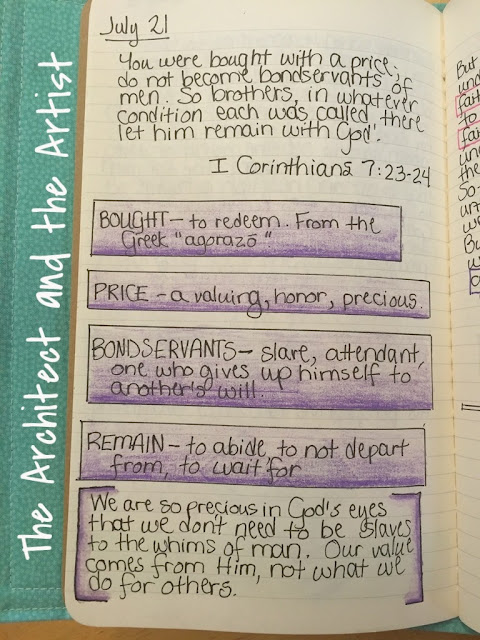 The Architect and the Artist
July 21
You were bought with a price;
do not become bondservants of
men. So brothers, in whatever
condition each was called, there
let him remain with God.
I Corinthians 7:23-24
BOUGHT - to redeem. From the
Greek "agorazō"
PRICE - a valuing, honor, precious.
BONDSERVANTS - slave, attendant,
one who gives up himself to
another's will.
REMAIN - to abide, to not depart
from, to wait for
We are so precious in God's eyes
that we don't need to be slaves
to the whims of man. Our value
comes from Him, not what we
do for others.
But
fait
to
fai
the
So
But